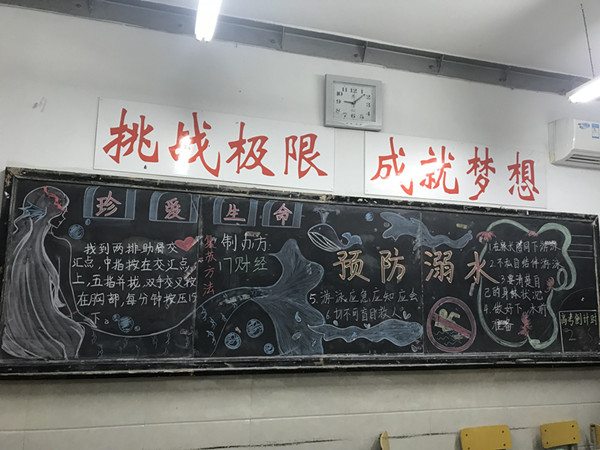 挑战极限
成就梦想
珍爱生命
找到两排肋骨交
汇点,中指按在交汇点
上,五指并拢,双手交叉按
在胸部,每分钟按压15
下。
急救方法
制办方:
17财经
预防溺水
5.游泳应急应知应会
6.切不可盲目救人
1.在妹长陪同下游泳
2.不私自结伴游泳
3.要清楚自
己的身体状况
4.做好下水前
准备
高考倒计时